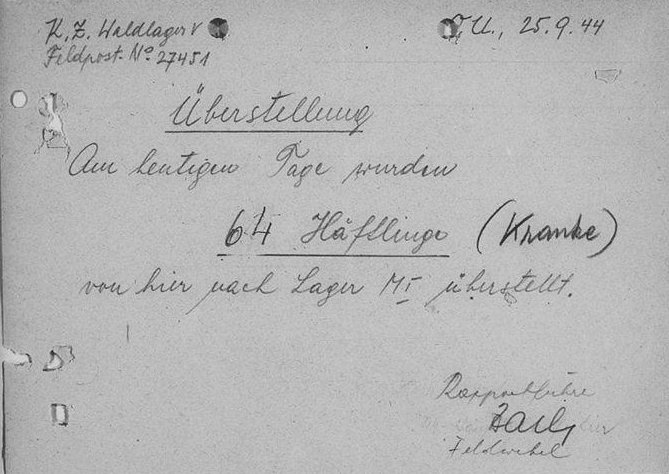 K. Z. Waldlager V
Feldpost. No 27451
O, U., 25.9.44
Überstellung
Am heutigen Tage wurden
64 Häftlinge (Kranke)
von hier nach Lager M I überstellt.
Rapportführer
Feldwebel